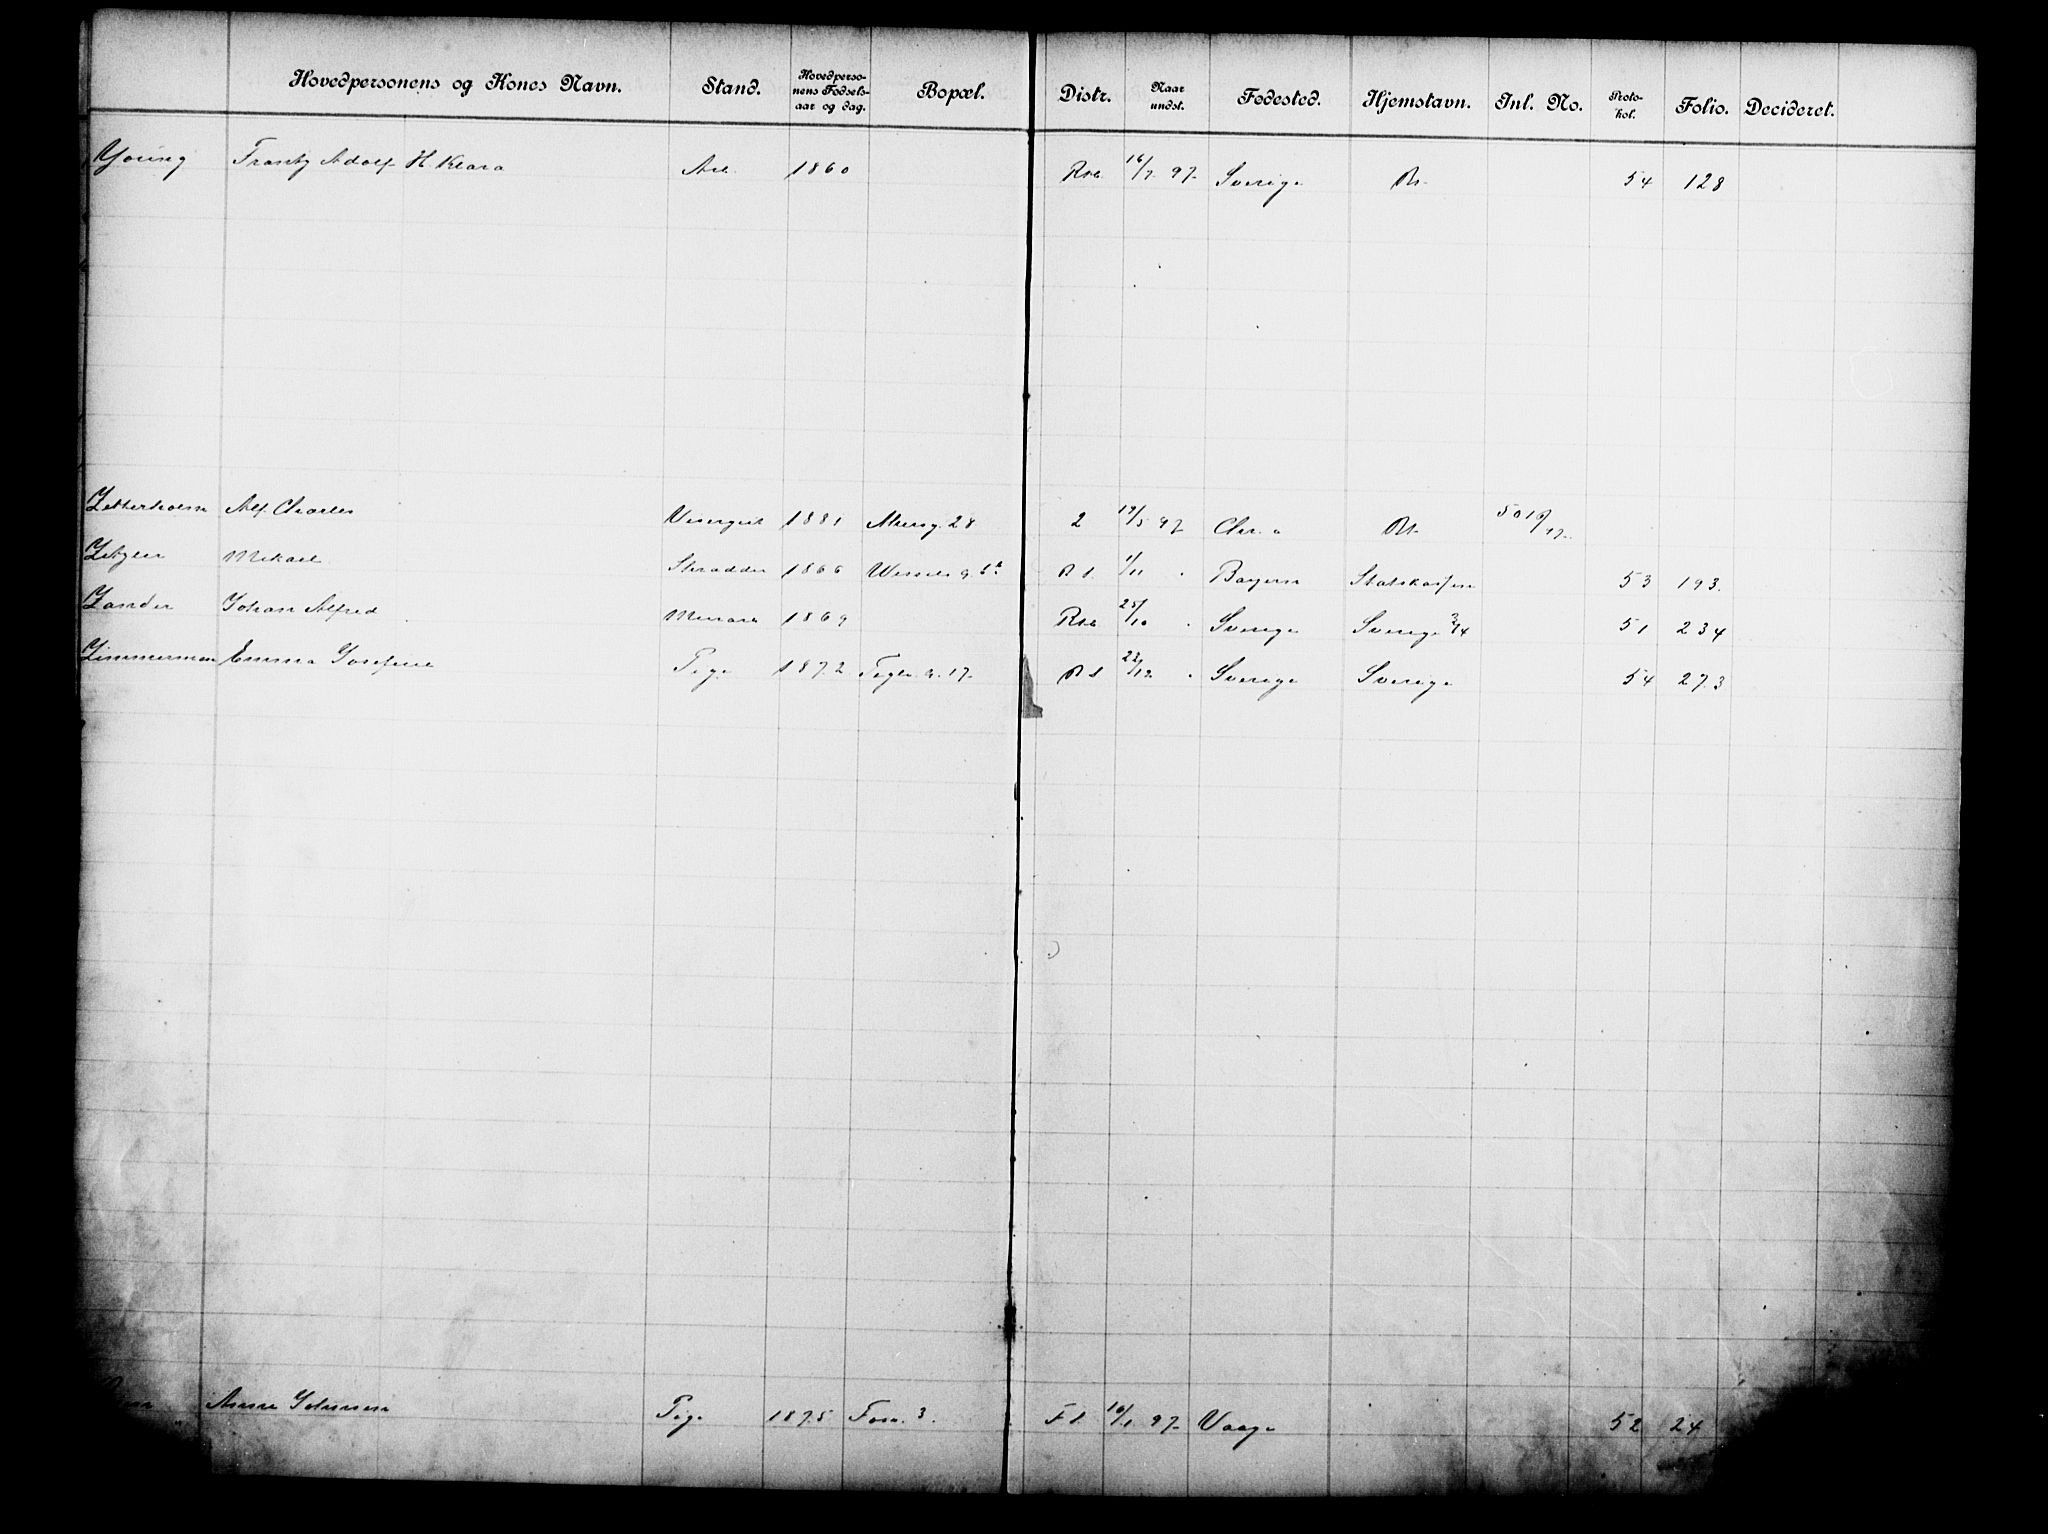 Hovedpersonens og Kones Navn. Stand. Hovedperso-nens Fødsels-aar og dag. Bopæl. Distr. Naar undst. Fødested. Hjemstavn. Inl. No. Proto-kol. Folio. Decideret.
Young Frantz Adolf H. Klara Arb. 1860 16/7 97 Sverige 54 128
Zetterholm Alf Charles Visergut 1881 28 2 19/5 97 Chr.a
Mikael Skrædder 1866 Wessels g. 1/11 " Bayern Statskassen 53 193
Zander Johan Alfred Murarb 1869 25/10 " Sverige Sverige 51 234
Zimmerman Emma Josefine Pige 1872 Teglv. g. 17 22/12 " Sverige Sverige 54 273
Anne Johnsen Pige 1875 Foss. 3. F.l. 10/1 97 Vaage 52 24